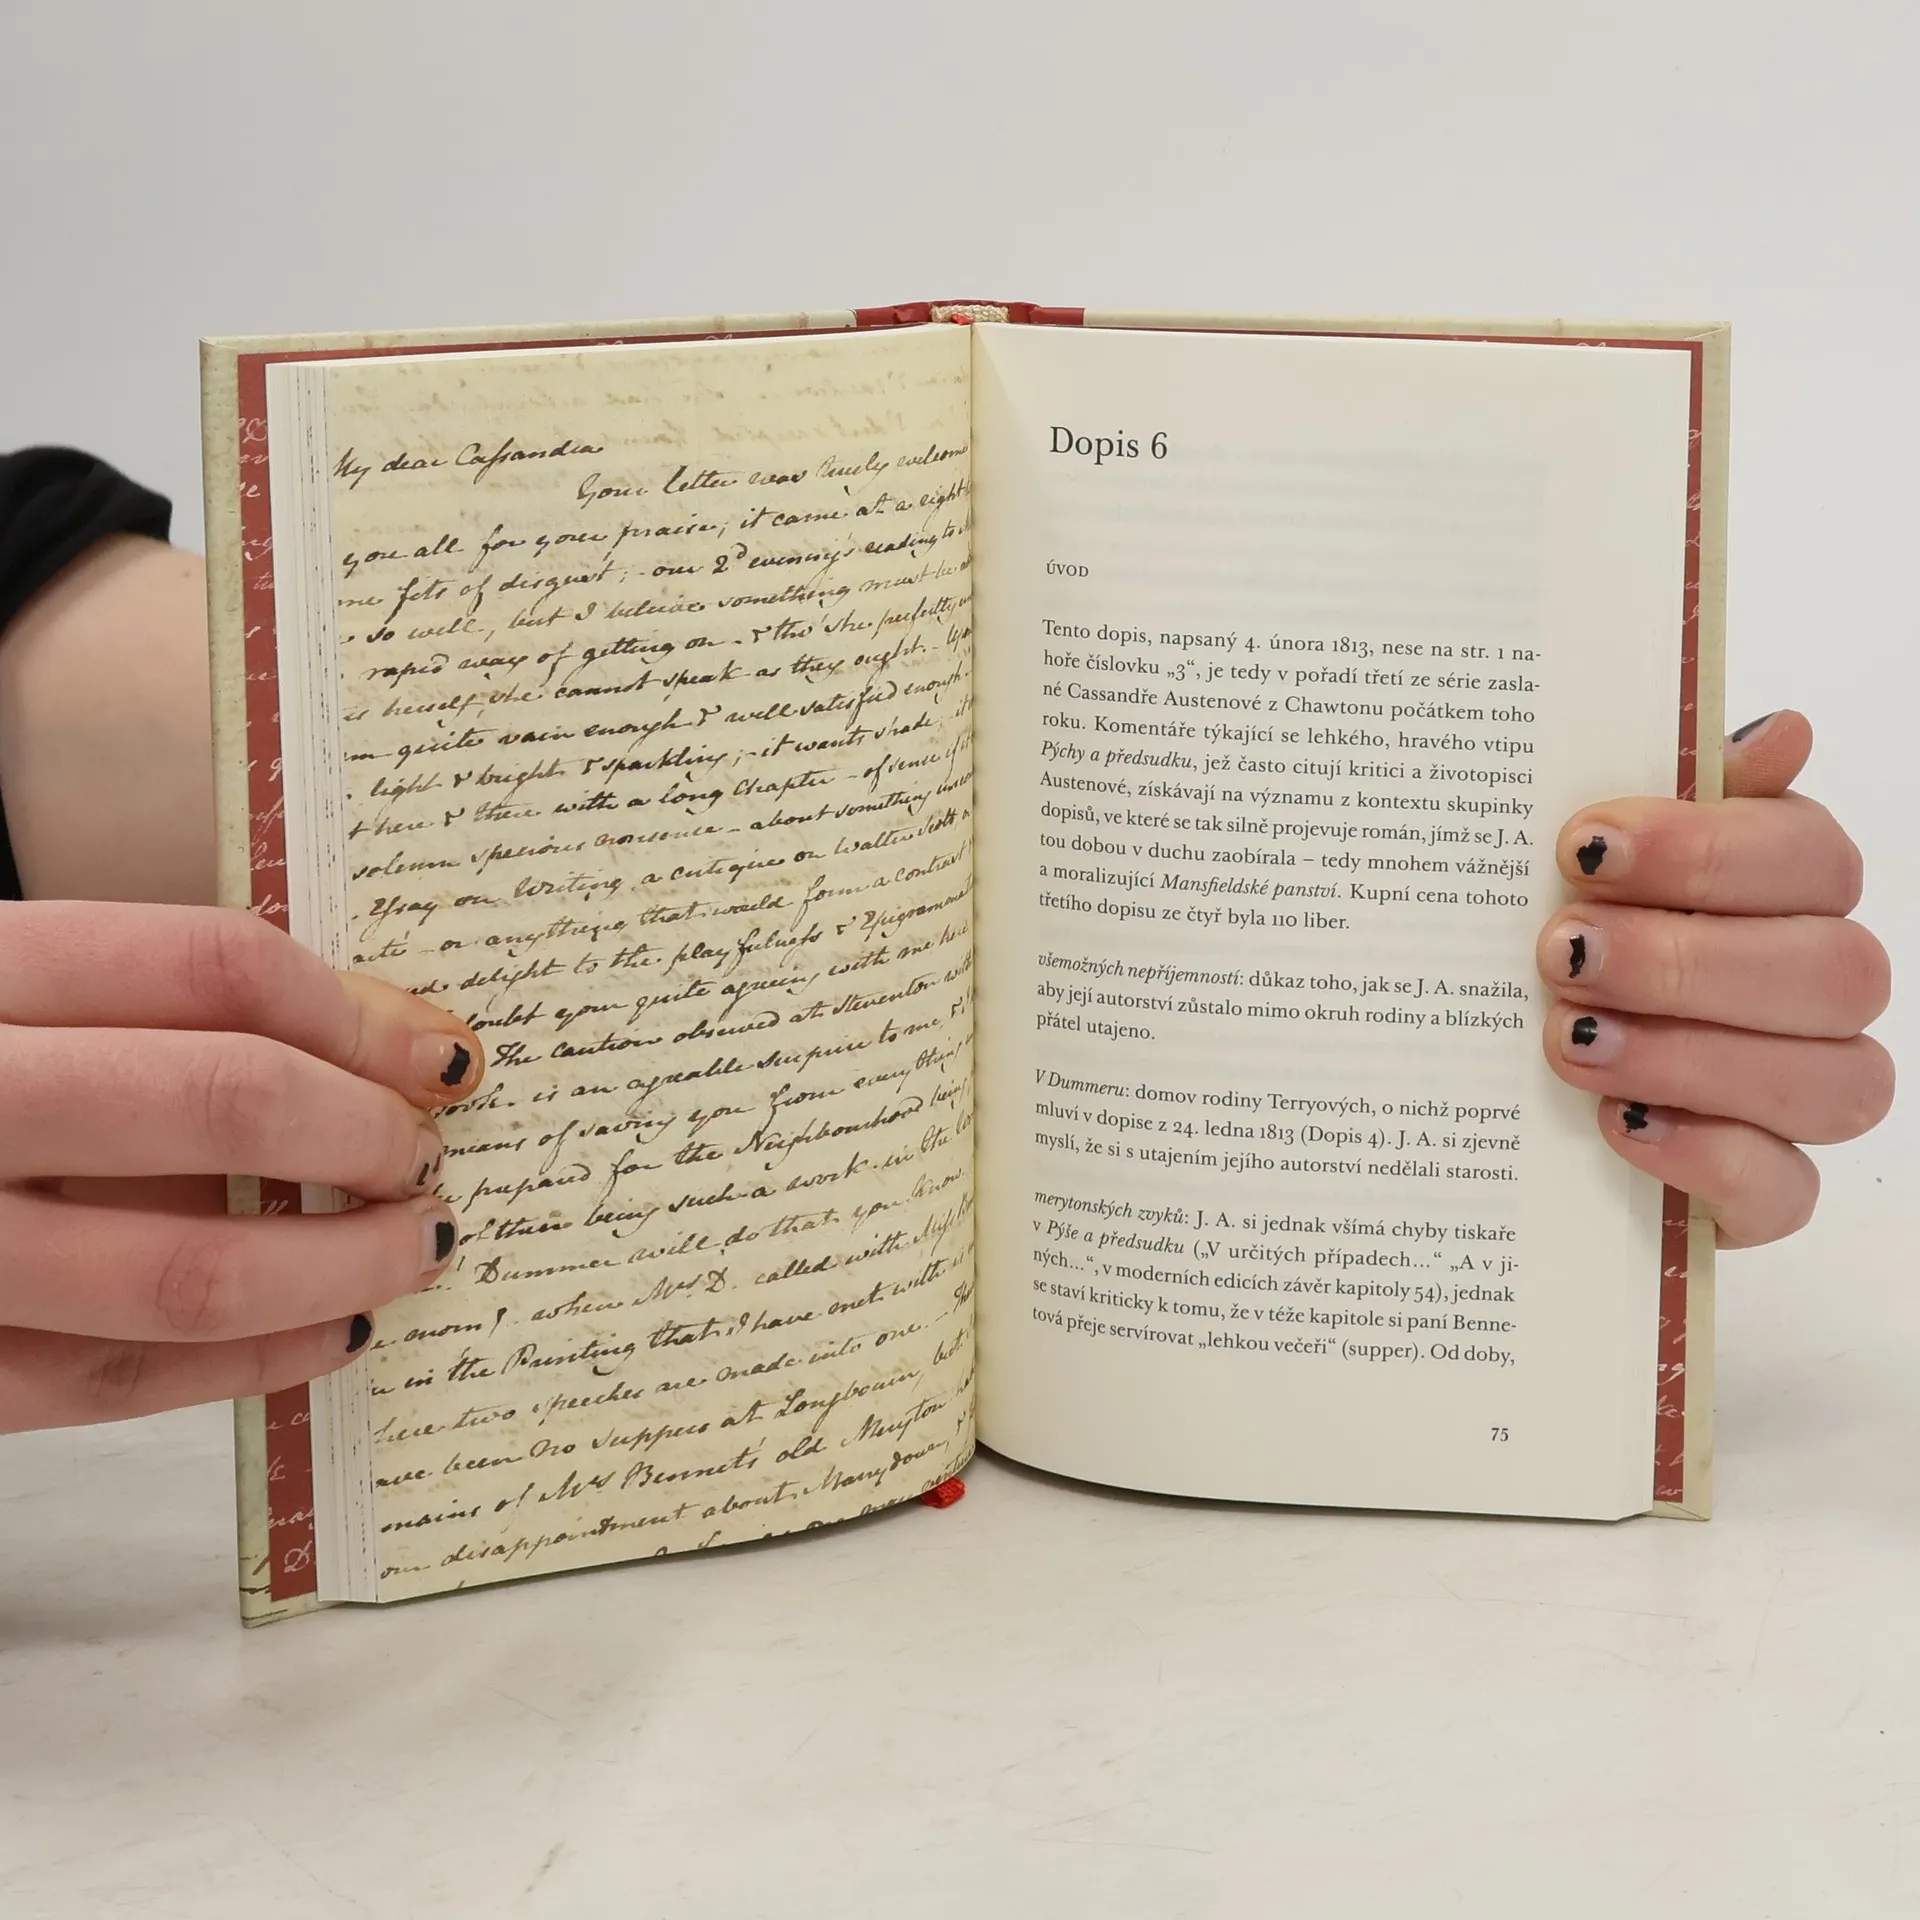 My dear Cassandra
Your letter was truly welcome
you all for your praise; it came at a right
me fits of disgust; - our 2d evening's reading to
so well, but I believe something must be
rapid way of getting on - & tho' she perfectly
herself, she cannot speak as they ought. -
quite vain enough & well satisfied enough. -
light & bright & sparkling; - it wants shade; - it
here & there with a long Chapter - of sense if it
solemn specious nonsense - about something
Essay on Writing, a critique on Walter Scott, or
or anything that would form a contrast
delight to the playfulness & Epigrammat
doubt your quite agreeing with me here
The caution observed at Steventon with
is an agreable surprise to me, &
means of saving you from everything
be prepared for the Neighbourhood being
of there being such a work in the
Dummer will do that you know.
when Mrs D. called with Miss
in the Printing that I have met with is
two speeches are made into one. -
been no suppers at Longbourn, but
mains of Mrs Bennet's old Meryton
our disappointment about Manydown, &
Dopis 6
ÚVOD
Tento dopis, napsaný 4. února 1813, nese na str. 1 na-
hoře číslovku „3“, je tedy v pořadí třetí ze série zasla-
né Cassandře Austenové z Chawtonu počátkem toho
roku. Komentáře týkající se lehkého, hravého vtipu
Pýchy a předsudku, jež často citují kritici a životopisci
Austenové, získávají na významu z kontextu skupinky
dopisů, ve které se tak silně projevuje román, jímž se J. A.
tou dobou v duchu zaobírala – tedy mnohem vážnější
a moralizující Mansfieldské panství. Kupní cena tohoto
třetího dopisu ze čtyř byla 110 liber.
všemožných nepříjemností: důkaz toho, jak se J. A. snažila,
aby její autorství zůstalo mimo okruh rodiny a blízkých
přátel utajeno.
V Dummeru: domov rodiny Terryových, o nichž poprvé
mluví v dopise z 24. ledna 1813 (Dopis 4). J. A. si zjevně
myslí, že si s utajením jejího autorství nedělali starosti.
merytonských zvyků: J. A. si jednak všímá chyby tiskaře
v Pýše a předsudku („V určitých případech...“ „A v ji-
ných...“, v moderních edicích závěr kapitoly 54), jednak
se staví kriticky k tomu, že v téže kapitole si paní Benne-
tová přeje servírovat „lehkou večeři“ (supper). Od doby,
75